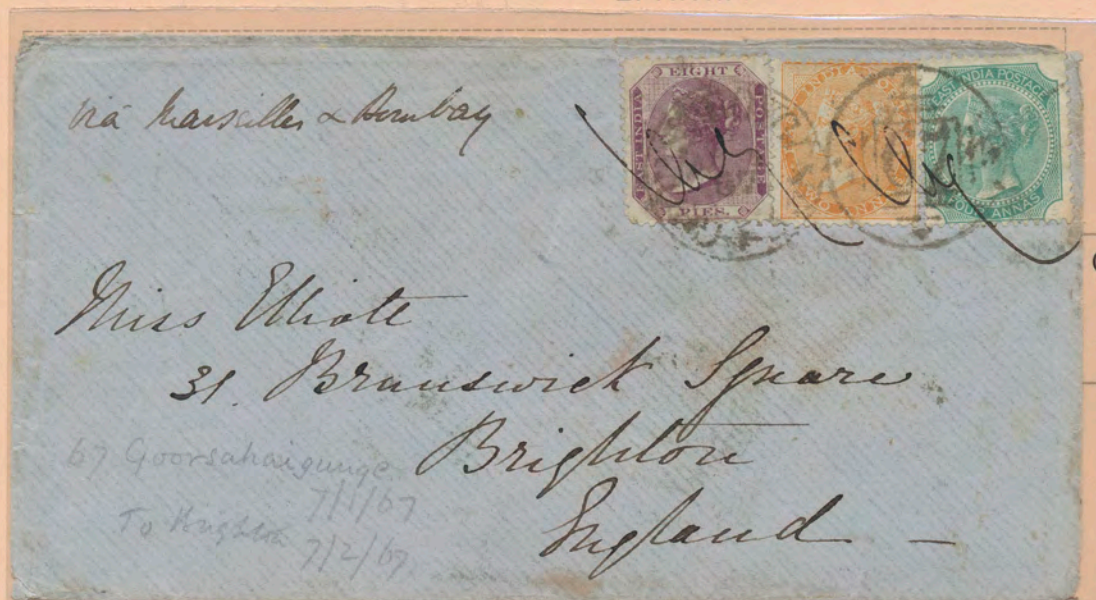 via Marseilles & Bombay
EIGHT
EAST INDIA
POSTAGE
PIES.
INDIA
TWO ANNAS
EAST INDIA POSTAGE
FOUR ANNAS
Miss Elliott
31. Brunswick Square
Brighton
England
67 Goorsahaigunge
7/1/67
To Brighton
7/2/67